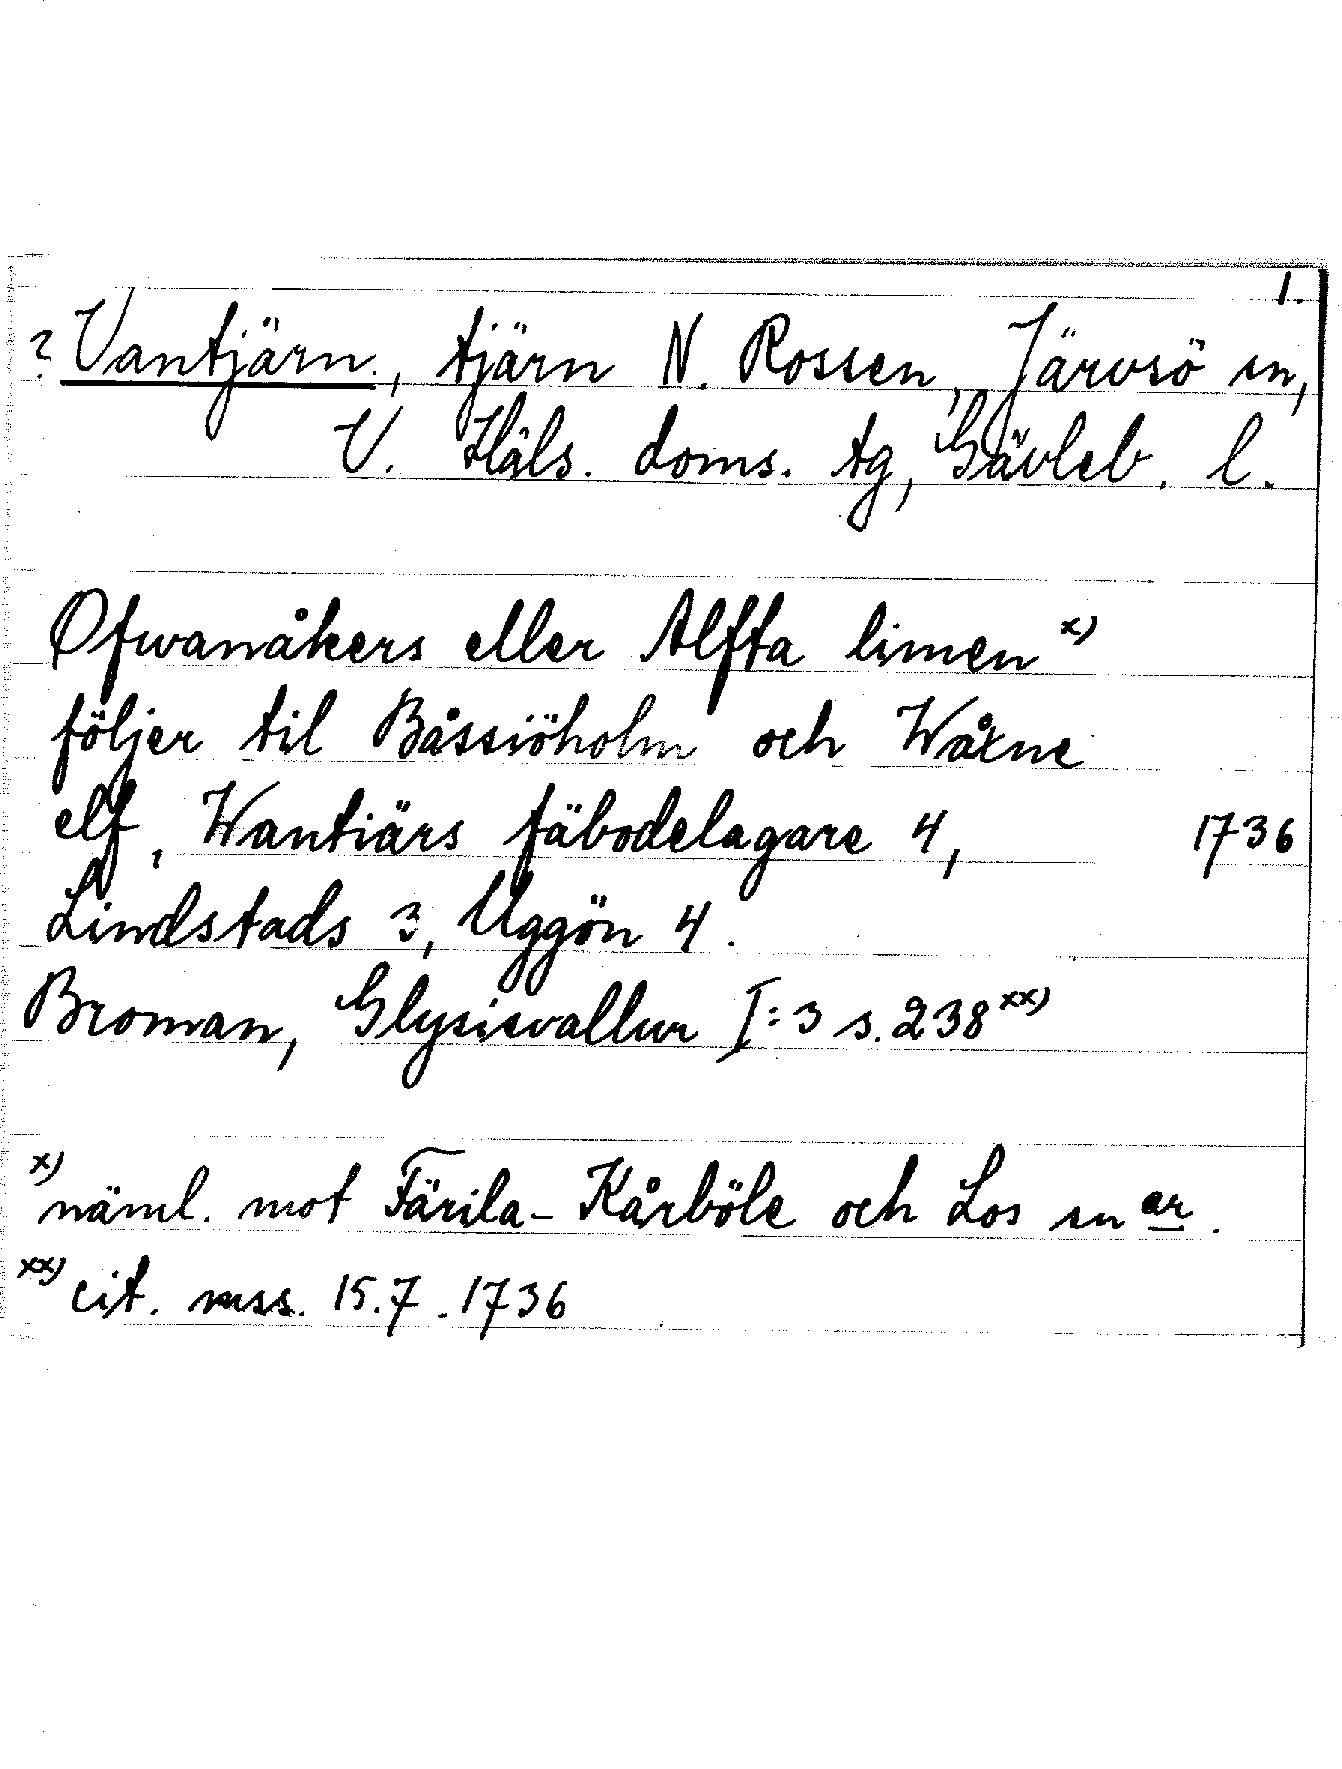 1.
? Vantjärn., tjärn N. Rossen, Järvsö sn,
V. Häls. doms. tg, Gävleb. l.
Ofwanåkers eller Alfta limen x)
följer til Båssiöholm och Wåxne
elf, Wantiärs fäbodelagare 4, 1736
Lindstads 3, Uggön 4.
Broman, Glysisvallur I:3 s. 238 xx)
x) näml. mot Färila-Kårböle och Los sn ar.
xx) cit. mss. 15.7.1736